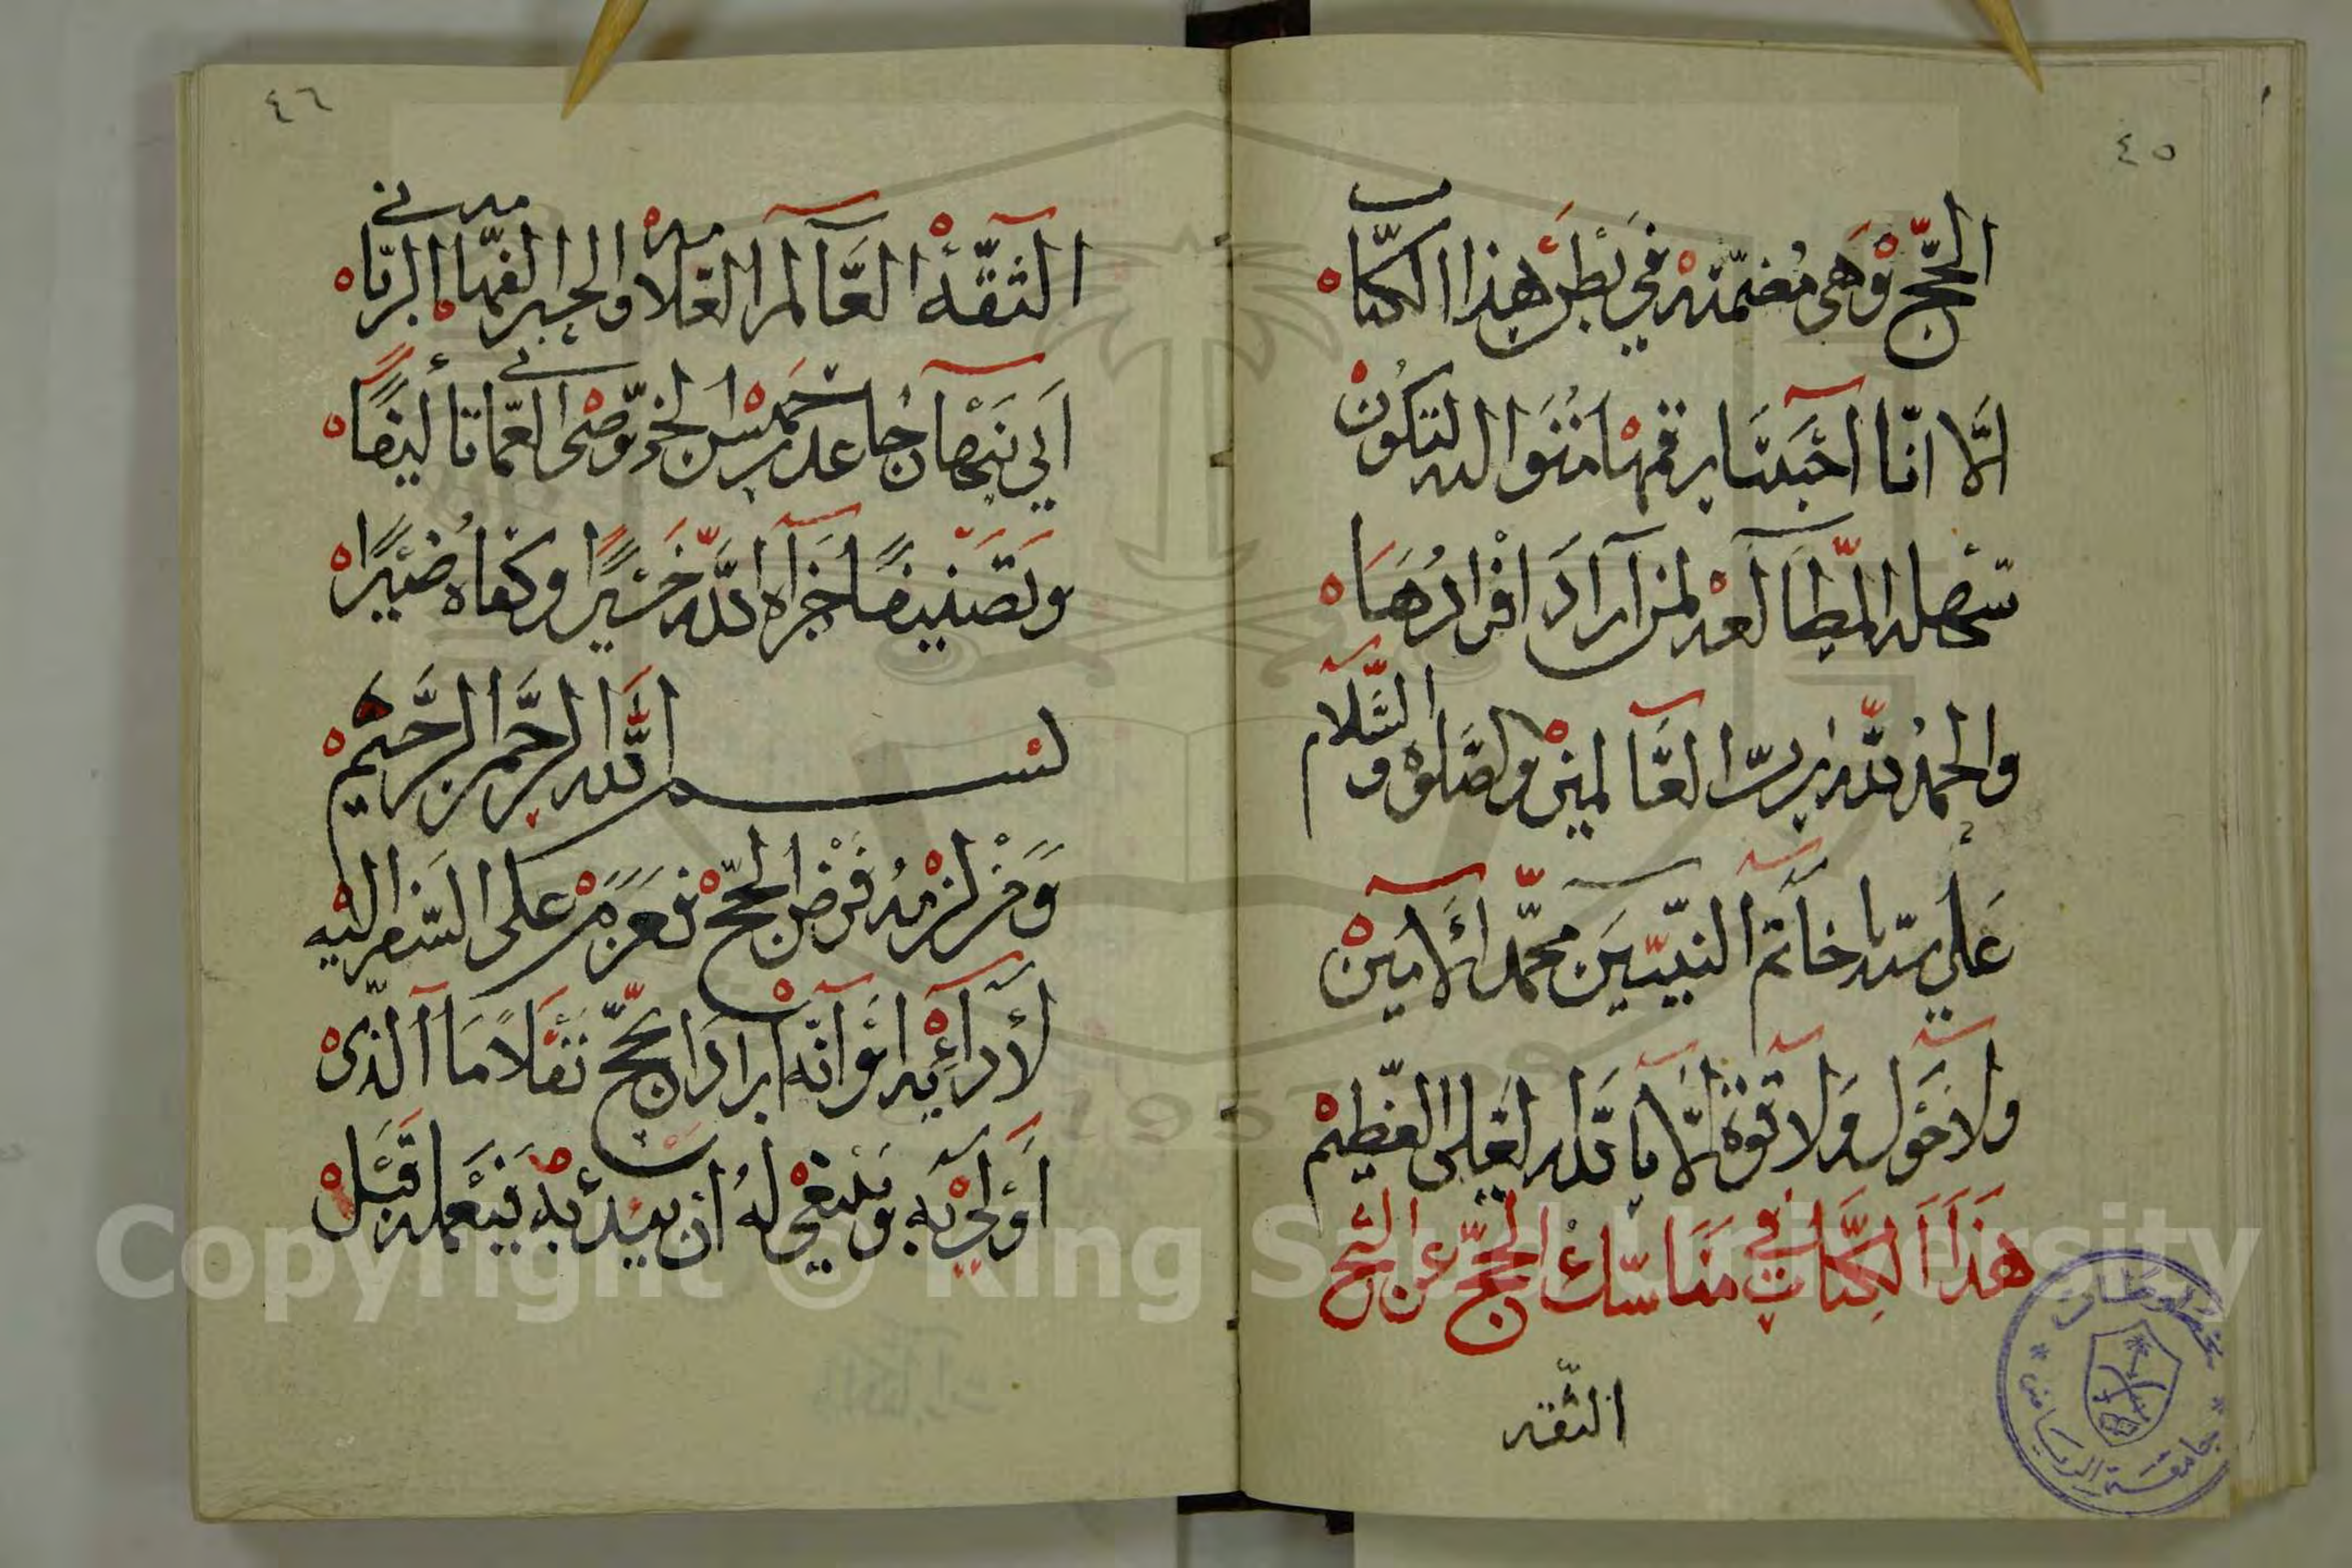 ٤٥
الحجّ وهى مضمّنه في بطن هذا الكتاب
الّا انّا احببنا رقمها منثوا لله لتكون
سهله المطالعه لمن اراد افرادها
والحمد لله ربّ العالمين والصّلوة والسّلام
على سيّدنا خاتم النبيّين محمّد الامين
ولا حول ولا قوّة الّا بالله العلى العظيم
هذا الكتاب في مناسك الحجّ عن الشيخ
الثقه
٤٦
الثقّة العالم العلامه والحبر الفهّامه الربّاني
ابي نبهان جاعد بن خميس الخروصى العمانى تأليفًا
وتصنيفًا جزاه الله خيرًا وكفاه ضيرًا
بسم الله الرحمن الرّحيم
ومن لزمه فرض الحجّ فعزم على السّفر اليه
لأدائه او انّه اراد الحجّ تنفّلًا ما الّذى
اولى به وينبغي له ان يبدئ به فيعمله قبل
مخطوطات
جامعة الرياض
Copyright © King Saud University
1957